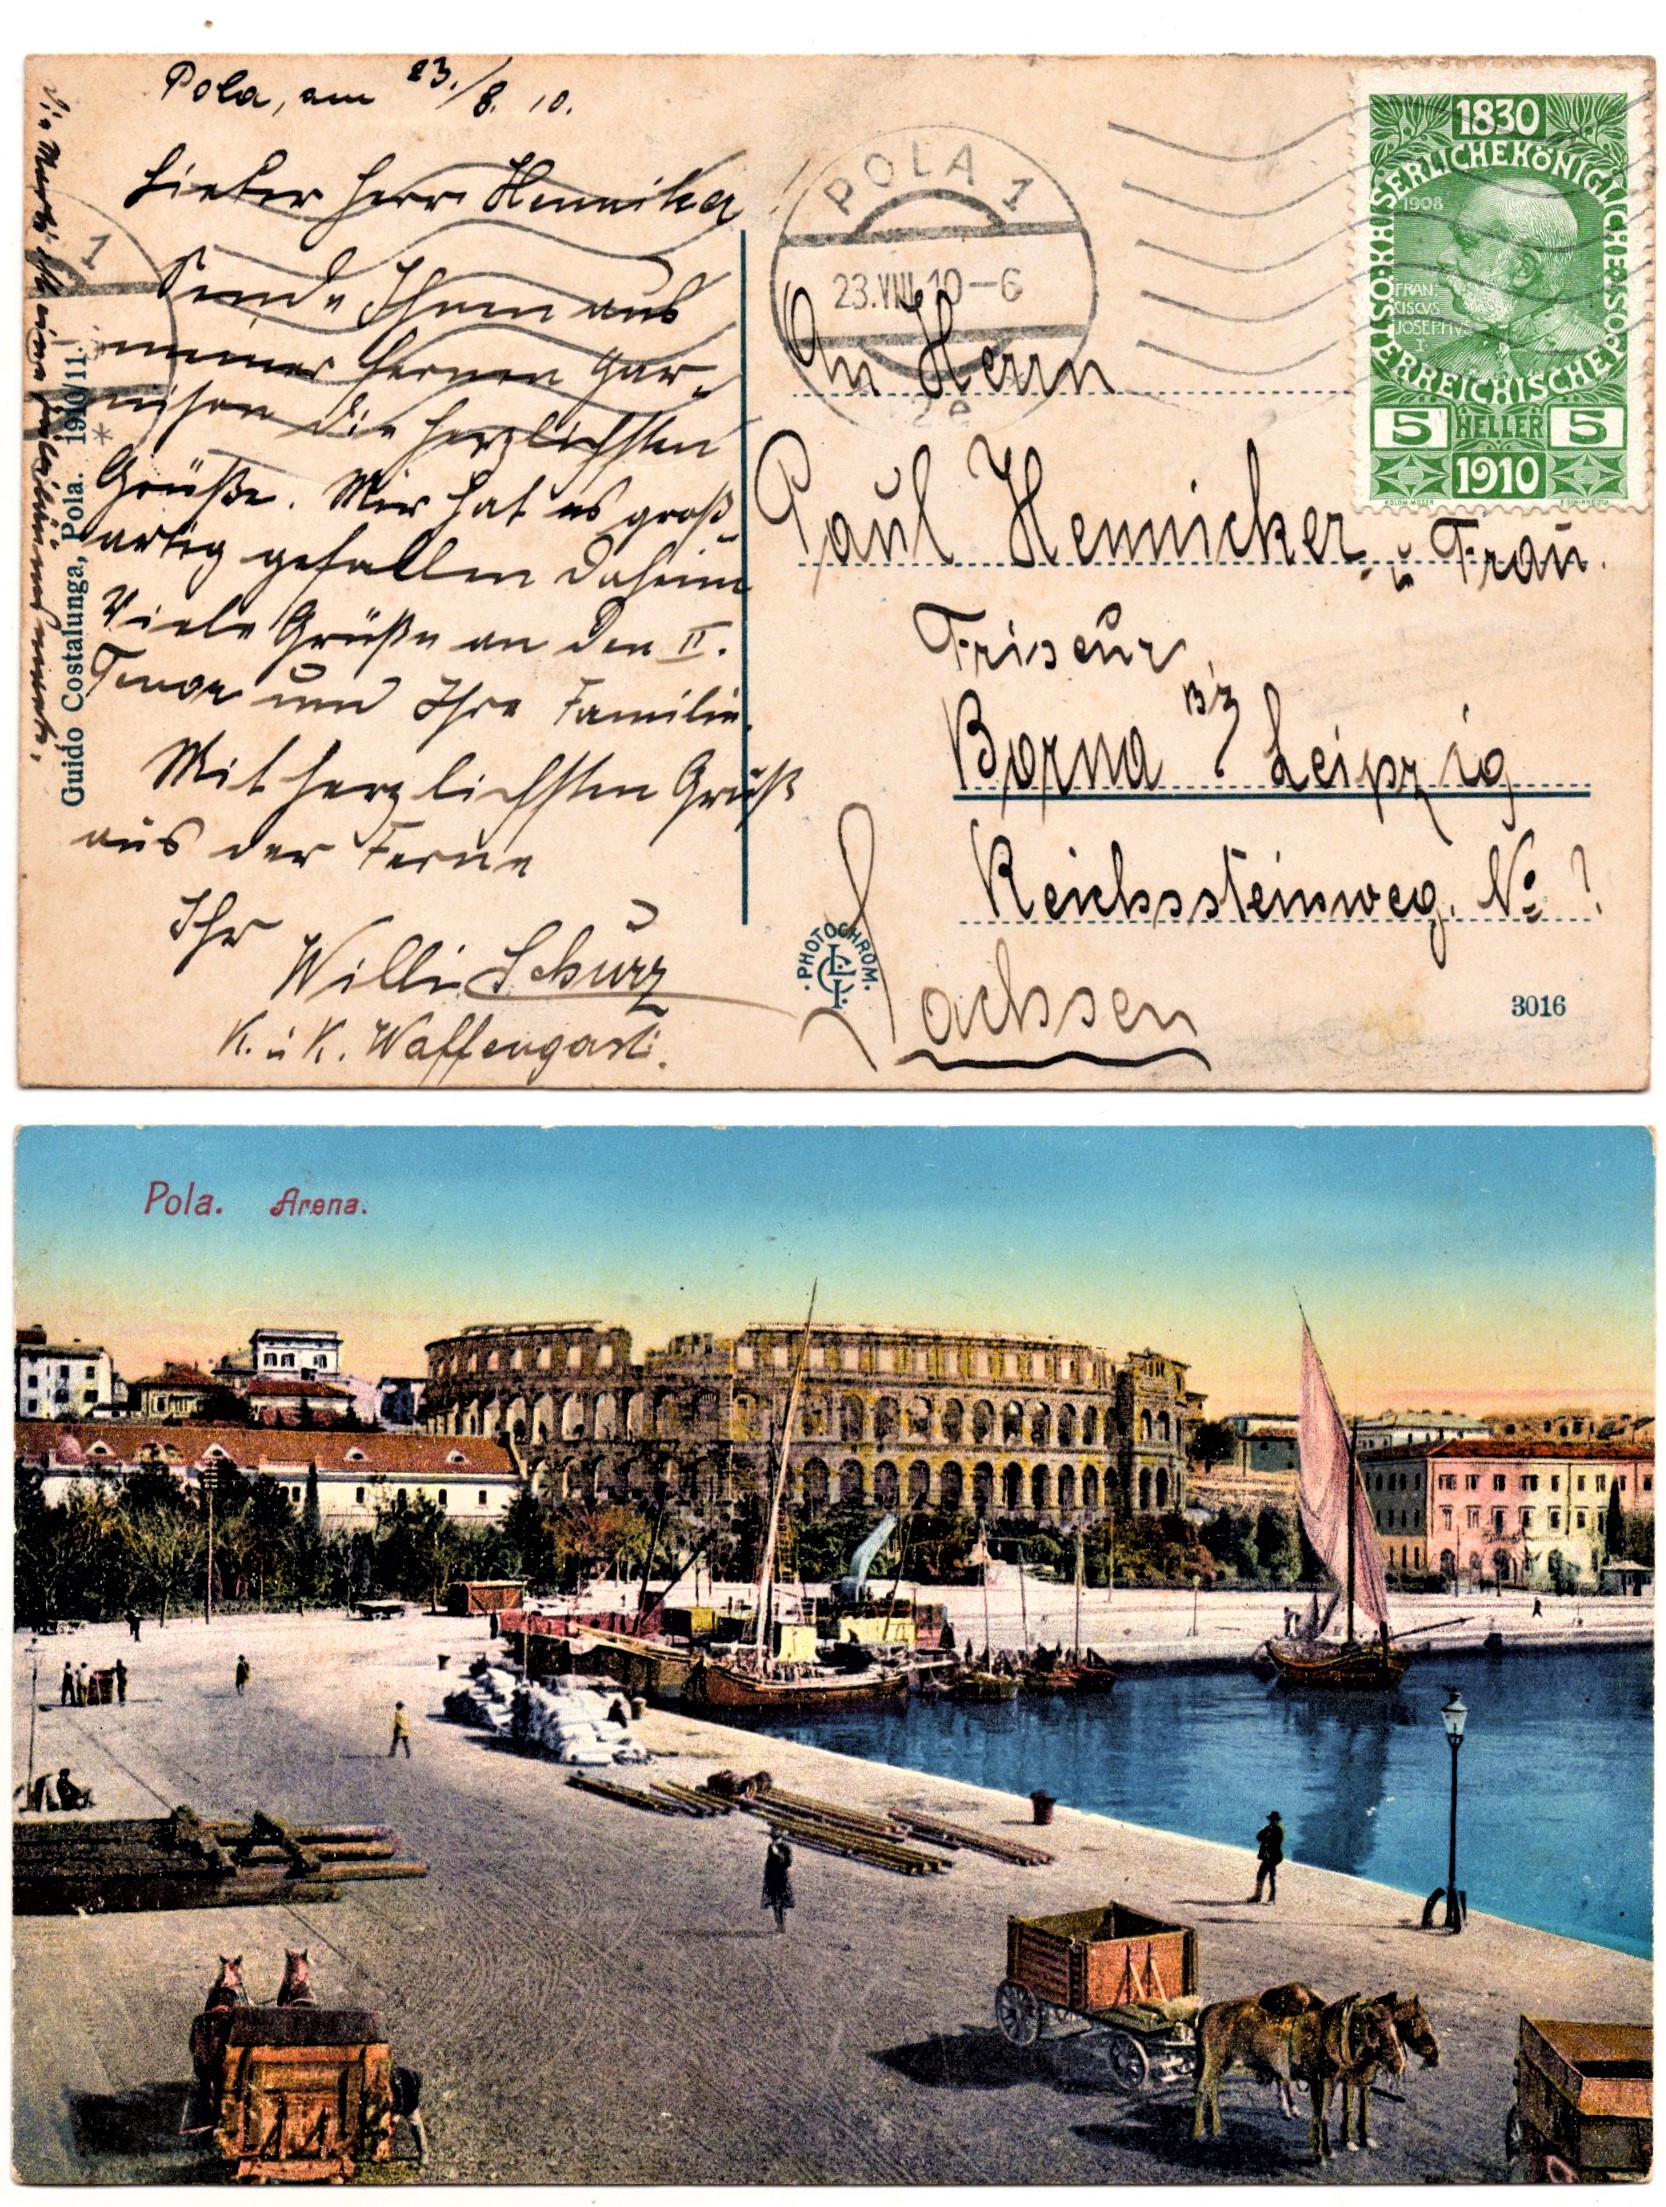 Pola, am 23./8. 10.
Lieber Herr Hennicker
Sende Ihnen aus
meiner fernen Gar-
nison die herzlichsten
Grüße. Mir hat es groß-
artig gefallen daheim
Viele Grüße an den II.
Tenor und Ihre Familie.
Mit herzlichsten Gruß
aus der Ferne
Ihr
Willi Schurz
K. u K. Waffengast.
Guido Costalunga, Pola. 1910/11.
POLA 1
23.VIII.10–6
2e
1
1830
KAISERLICHEKÖNIGLICHE
ÖSTERREICHISCHEPOST
1908
FRAN
CISCVS
JOSEPHVS
I
5 HELLER 5
1910
An Herrn
Paul Hennicker u Frau.
Friseur,
Borna Bz Leipzig
Reichssteinweg. No ?
Sachsen
PHOTOCHROM.
3016
Pola. Arena.